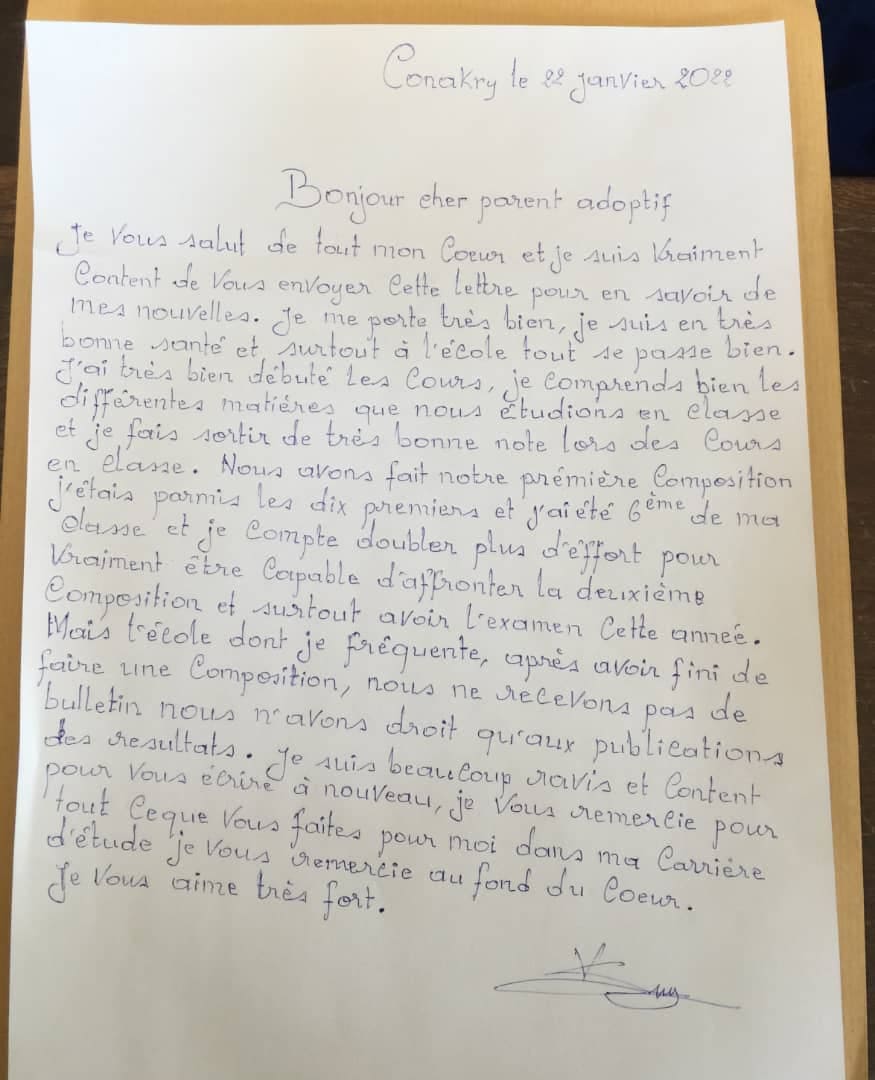 Conakry le 22 janvier 2022
Bonjour cher parent adoptif
Je vous salut de tout mon Coeur et je suis vraiment
Content de vous envoyer Cette lettre pour en savoir de
mes nouvelles. Je me porte très bien, je suis en très
bonne santé et surtout à l'école tout se passe bien.
J'ai très bien débuté les Cours, je Comprends bien les
différentes matières que nous étudions en classe
et je fais sortir de très bonne note lors des Cours
en classe. Nous avons fait notre prémière Composition
j'étais parmis les dix premiers et j'ai été 6ème de ma
classe et je Compte doubler plus d'éffort pour
vraiment être Capable d'affronter la deuxième
Composition et surtout avoir l'examen Cette anneé.
Mais l'école dont je fréquente, après avoir fini de
faire une Composition, nous ne recevons pas de
bulletin nous n'avons droit qu'aux publications
des resultats. Je suis beaucoup ravis et Content
pour vous écrire à nouveau, je vous remercie pour
tout Ceque vous faites pour moi dans ma Carrière
d'étude je vous remercie au fond du Coeur.
Je vous aime très fort.